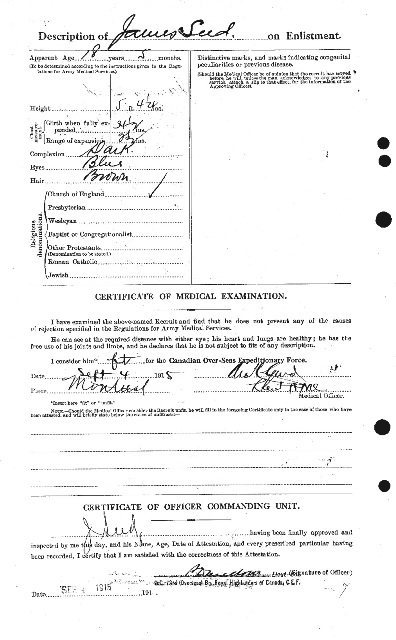 Description of James Seed. on Enlistment.
Apparent Age 18 years 5 months.
(To be determined according to the instructions given in the Regulations for Army Medical Services.)
Distinctive marks, and marks indicating congenital
peculiarities or previous disease.
(Should the Medical Officer be of opinion that the recruit has served
before, he will, unless the man acknowledges to any previous
service, attach a slip to that effect, for the information of the
Approving Officer).
Height 5 ft. 4 ins.
Girth when fully expanded ins.
Range of expansion ins.
Complexion Dark
Eyes Blue
Hair Brown
Religious denominations.
Church of England
Presbyterian
Wesleyan
Baptist or Congregationalist
Other Protestants
(Denomination to be stated.)
Roman Catholic
Jewish
CERTIFICATE OF MEDICAL EXAMINATION.
I have examined the above-named Recruit and find that he does not present any of the causes
of rejection specified in the Regulations for Army Medical Services.
He can see at the required distance with either eye; his heart and lungs are healthy; he has the
free use of his joints and limbs, and he declares that he is not subject to fits of any description.
I consider him* fit for the Canadian Over-Seas Expeditionary Force.
Date Sept 4 1915
Place Montreal
Medical Officer.
*Insert here "fit" or "unfit."
NOTE.—Should the Medical Officer consider the Recruit unfit, he will fill in the foregoing Certificate only in the case of those who have
been attested, and will briefly state below the cause of unfitness:—
CERTIFICATE OF OFFICER COMMANDING UNIT.
J Seed having been finally approved and
inspected by me this day, and his Name, Age, Date of Attestation, and every prescribed particular having
been recorded, I certify that I am satisfied with the correctness of this Attestation.
(Signature of Officer)
Royal Highlanders of Canada, C.E.F.
Date SEP 1915 191